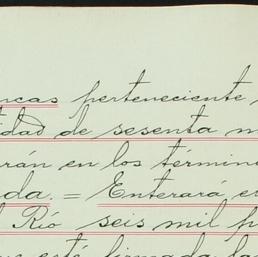 ncas perteneciente
tidad de sesenta m
arán en los términ
da. = Enterará e
l Río seis mil p
ue esté firmada la